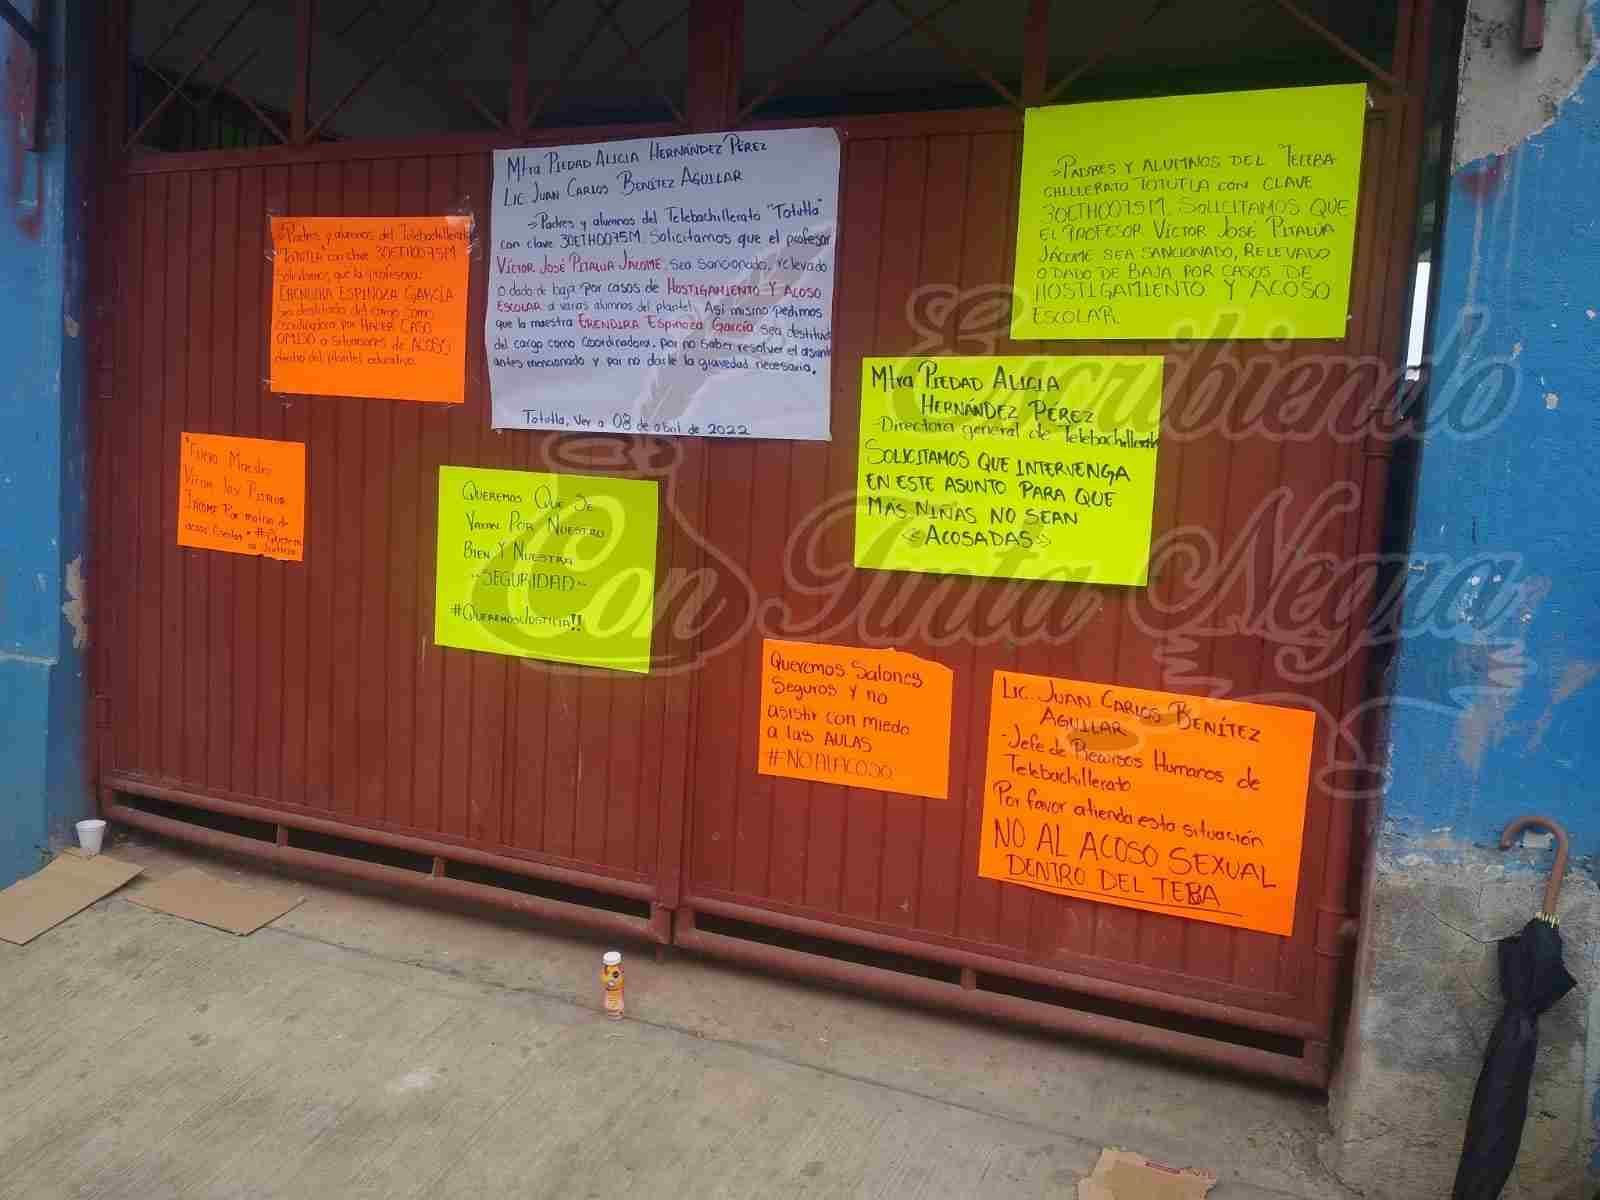 Mtra PIEDAD ALICIA HERNÁNDEZ PÉREZ
LIC. JUAN CARLOS BENÍTEZ AGUILAR
->Padres y alumnos del Telebachillerato "Totutla"
con clave 30ETH0075M. Solicitamos que el profesor
VÍCTOR JOSÉ PITALÚA JÁCOME. sea sancionado, relevado
o dado de baja por casos de HOSTIGAMIENTO Y ACOSO
ESCOLAR a varias alumnos del plantel. Así mismo pedimos
que la maestra ERENDIRA ESPINOZA GARCÍA sea destituida
del cargo como coordinadora. por no saber resolver el asunto
antes mencionado y por no darle la gravedad necesaria.
Totutla, Ver a 08 de abril de 2022
->PADRES Y ALUMNOS DEL TELEBA
CHILLERATO TOTUTLA CON CLAVE
30ETH0075M. SOLICITAMOS QUE
EL PROFESOR VÍCTOR JOSÉ PITALÚA
JÁCOME SEA SANCIONADO, RELEVADO
O DADO DE BAJA POR CASOS DE
HOSTIGAMIENTO Y ACOSO
ESCOLAR.
->Padres y alumnos del Telebachillerato
TOTUTLA con clave 30ETH0075M
solicitamos que la profesora:
ERENDIRA ESPINOZA GARCÍA
sea destituida del cargo como
coordinadora por HACER CASO
OMISO a situaciones de ACOSO
dentro del plantel educativo.
Mtra PIEDAD ALICIA
HERNÁNDEZ PÉREZ
-Directora general de Telebachillerato
SOLICITAMOS QUE INTERVENGA
EN ESTE ASUNTO PARA QUE
MÁS NIÑAS NO SEAN
<<ACOSADAS>>
Fuera Maestro
Víctor José Pitalua
Jácome Por motivo de
acoso Escolar * #Queremos
Justicia
QUEREMOS QUE SE
VAYAN POR NUESTRO
BIEN Y NUESTRA
~SEGURIDAD~
#QUEREMOSJUSTICIA!!
Queremos Salones
Seguros y no
asistir con miedo
a las AULAS
#NOALACOSO
LIC. JUAN CARLOS BENÍTEZ
AGUILAR
-Jefe de Recursos Humanos de
Telebachillerato
Por favor atienda esta situación
NO AL ACOSO SEXUAL
DENTRO DEL TEBA
Escribiendo
Con Tinta Negra